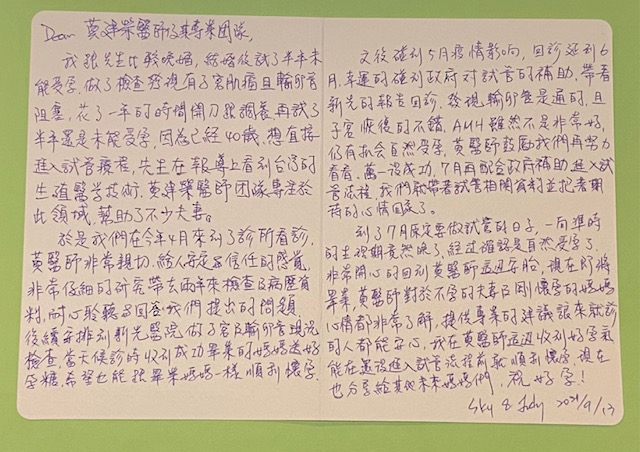 Dear 黃建榮醫師及其專業團隊,
我跟先生比較晚婚, 結婚後試了半年未
能受孕, 做了檢查發現有子宮肌瘤且輸卵管
阻塞, 花了一年的時間開刀跟調養再試了
半年還是未能受孕, 因為已經40歲, 想直接
進入試管療程, 先生在報導上看到台灣的
生殖醫學技術, 黃建榮醫師團隊專注於
此領域, 幫助了不少夫妻。
於是我們在今年4月來到了診所看診,
黃醫師非常親切, 給人安定且信任的感覺,
非常仔細的研究帶去兩年來檢查及病歷資
料, 耐心聆聽且回答我們提出的問題,
後續安排到新光醫院做子宮及輸卵管現況
檢查, 當天候診時收到成功畢業的媽媽送好
孕糖, 希望也能跟畢業媽媽一樣順利懷孕.
之後碰到5月疫情影响, 回診延到6
月, 幸運的碰到政府對試管的補助. 帶著
新光的報告回診, 發現輸卵管是通的, 且
子宮恢復的不錯, AMH雖然不是非常好,
仍有机会自然受孕, 黃醫師鼓勵我們再努力
看看, 萬一沒成功, 7月再配合政府補助進入試
管流程, 我們就帶著試管相關資料並抱著期
待的心情回家了.
到了7月原定要做試管的日子, 一向準時
的生理期竟然晚了, 經过確認是自然受孕了.
非常開心的回到黃醫師這边安胎, 現在即將
畢業, 黃醫師對於不孕的夫妻及剛懷孕的媽媽
心情都非常了解, 提供專業的建議讓來就診
的人都能安心, 我在黃醫師這边收到好孕氣
能在還沒進入試管流程前就順利懷孕, 現在
也分享給其他未來媽媽們, 祝好孕!
Sky & Judy 2021/9/13